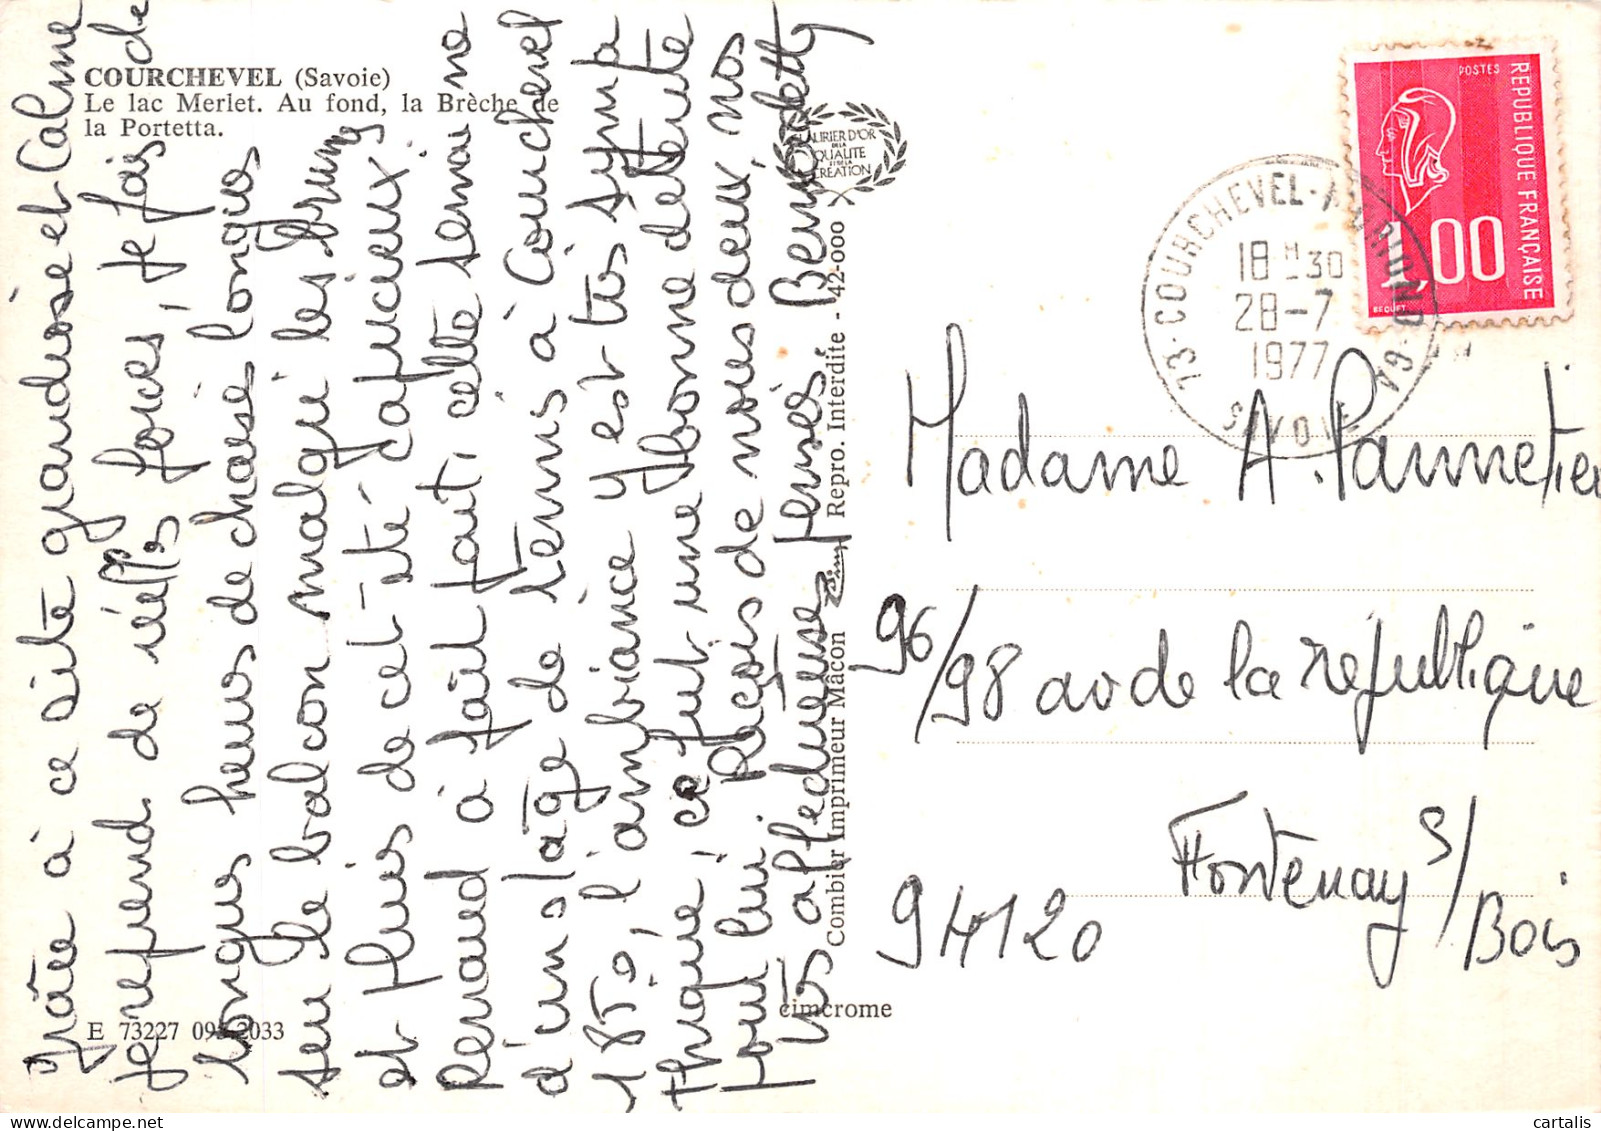 COURCHEVEL (Savoie)
Le lac Merlet. Au fond, la Brèche de
la Portetta.
Grâce à ce site grandiose et calme
je reprend de réelles forces, je fais de
longues heures de chaise longue
sur le balcon malgré les brumes
et pluies de cet été capricieux.
Renaud a fait tout cette semaine
d'un stage de tennis à Courchevel
1850, l'ambiance y est très sympa
thique, ce fut une bonne détente
pour lui. Reçois de nous deux, nos
très affectueuses pensées. Bernadette
E 73227 093-2033
cimcrome
Combier Imprimeur Mâcon
Cim
Repro. Interdite - 42-000
LAURIER D'OR
DE LA
QUALITE
ET DE LA
CREATION
POSTES
REPUBLIQUE FRANÇAISE
1,00
BEQUET
73·COURCHEVEL-MORIOND·GA
18 H 30
28-7
1977
SAVOIE
Madame A. Pannetier
96/98 av de la république
Fontenay s/
Bois
94120
cartalis